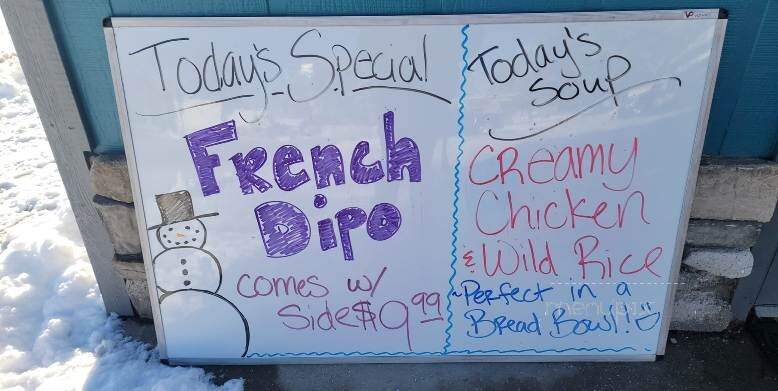 Today's Special
French
Dipo
comes w/
Side $9.99
Today's
Soup
Creamy
Chicken
& Wild Rice
~Perfect in a
Bread Bowl!